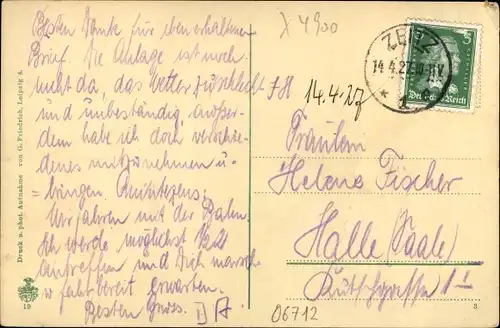 Besten Dank für eben erhaltenen
Brief. Die Anlage ist noch
nicht da, das Wetter zu schlecht
und unbeständig, ausser-
dem habe ich doch verschie-
denes mitzunehmen u.
Wir fahren mit der Bahn.
Ich werde möglichst 1/2 2
eintreffen und Dich marsch-
fahrtbereit erwarten.
Besten Gruss.
Druck u. phot. Aufnahme von G. Friedrich, Leipzig 4.
19
4900
14.4.27
ZEITZ
14.4.27
Deutsches Reich
5
Fräulein
Helene Fischer
Halle / Saale
Kutschgasse 1
06712
3